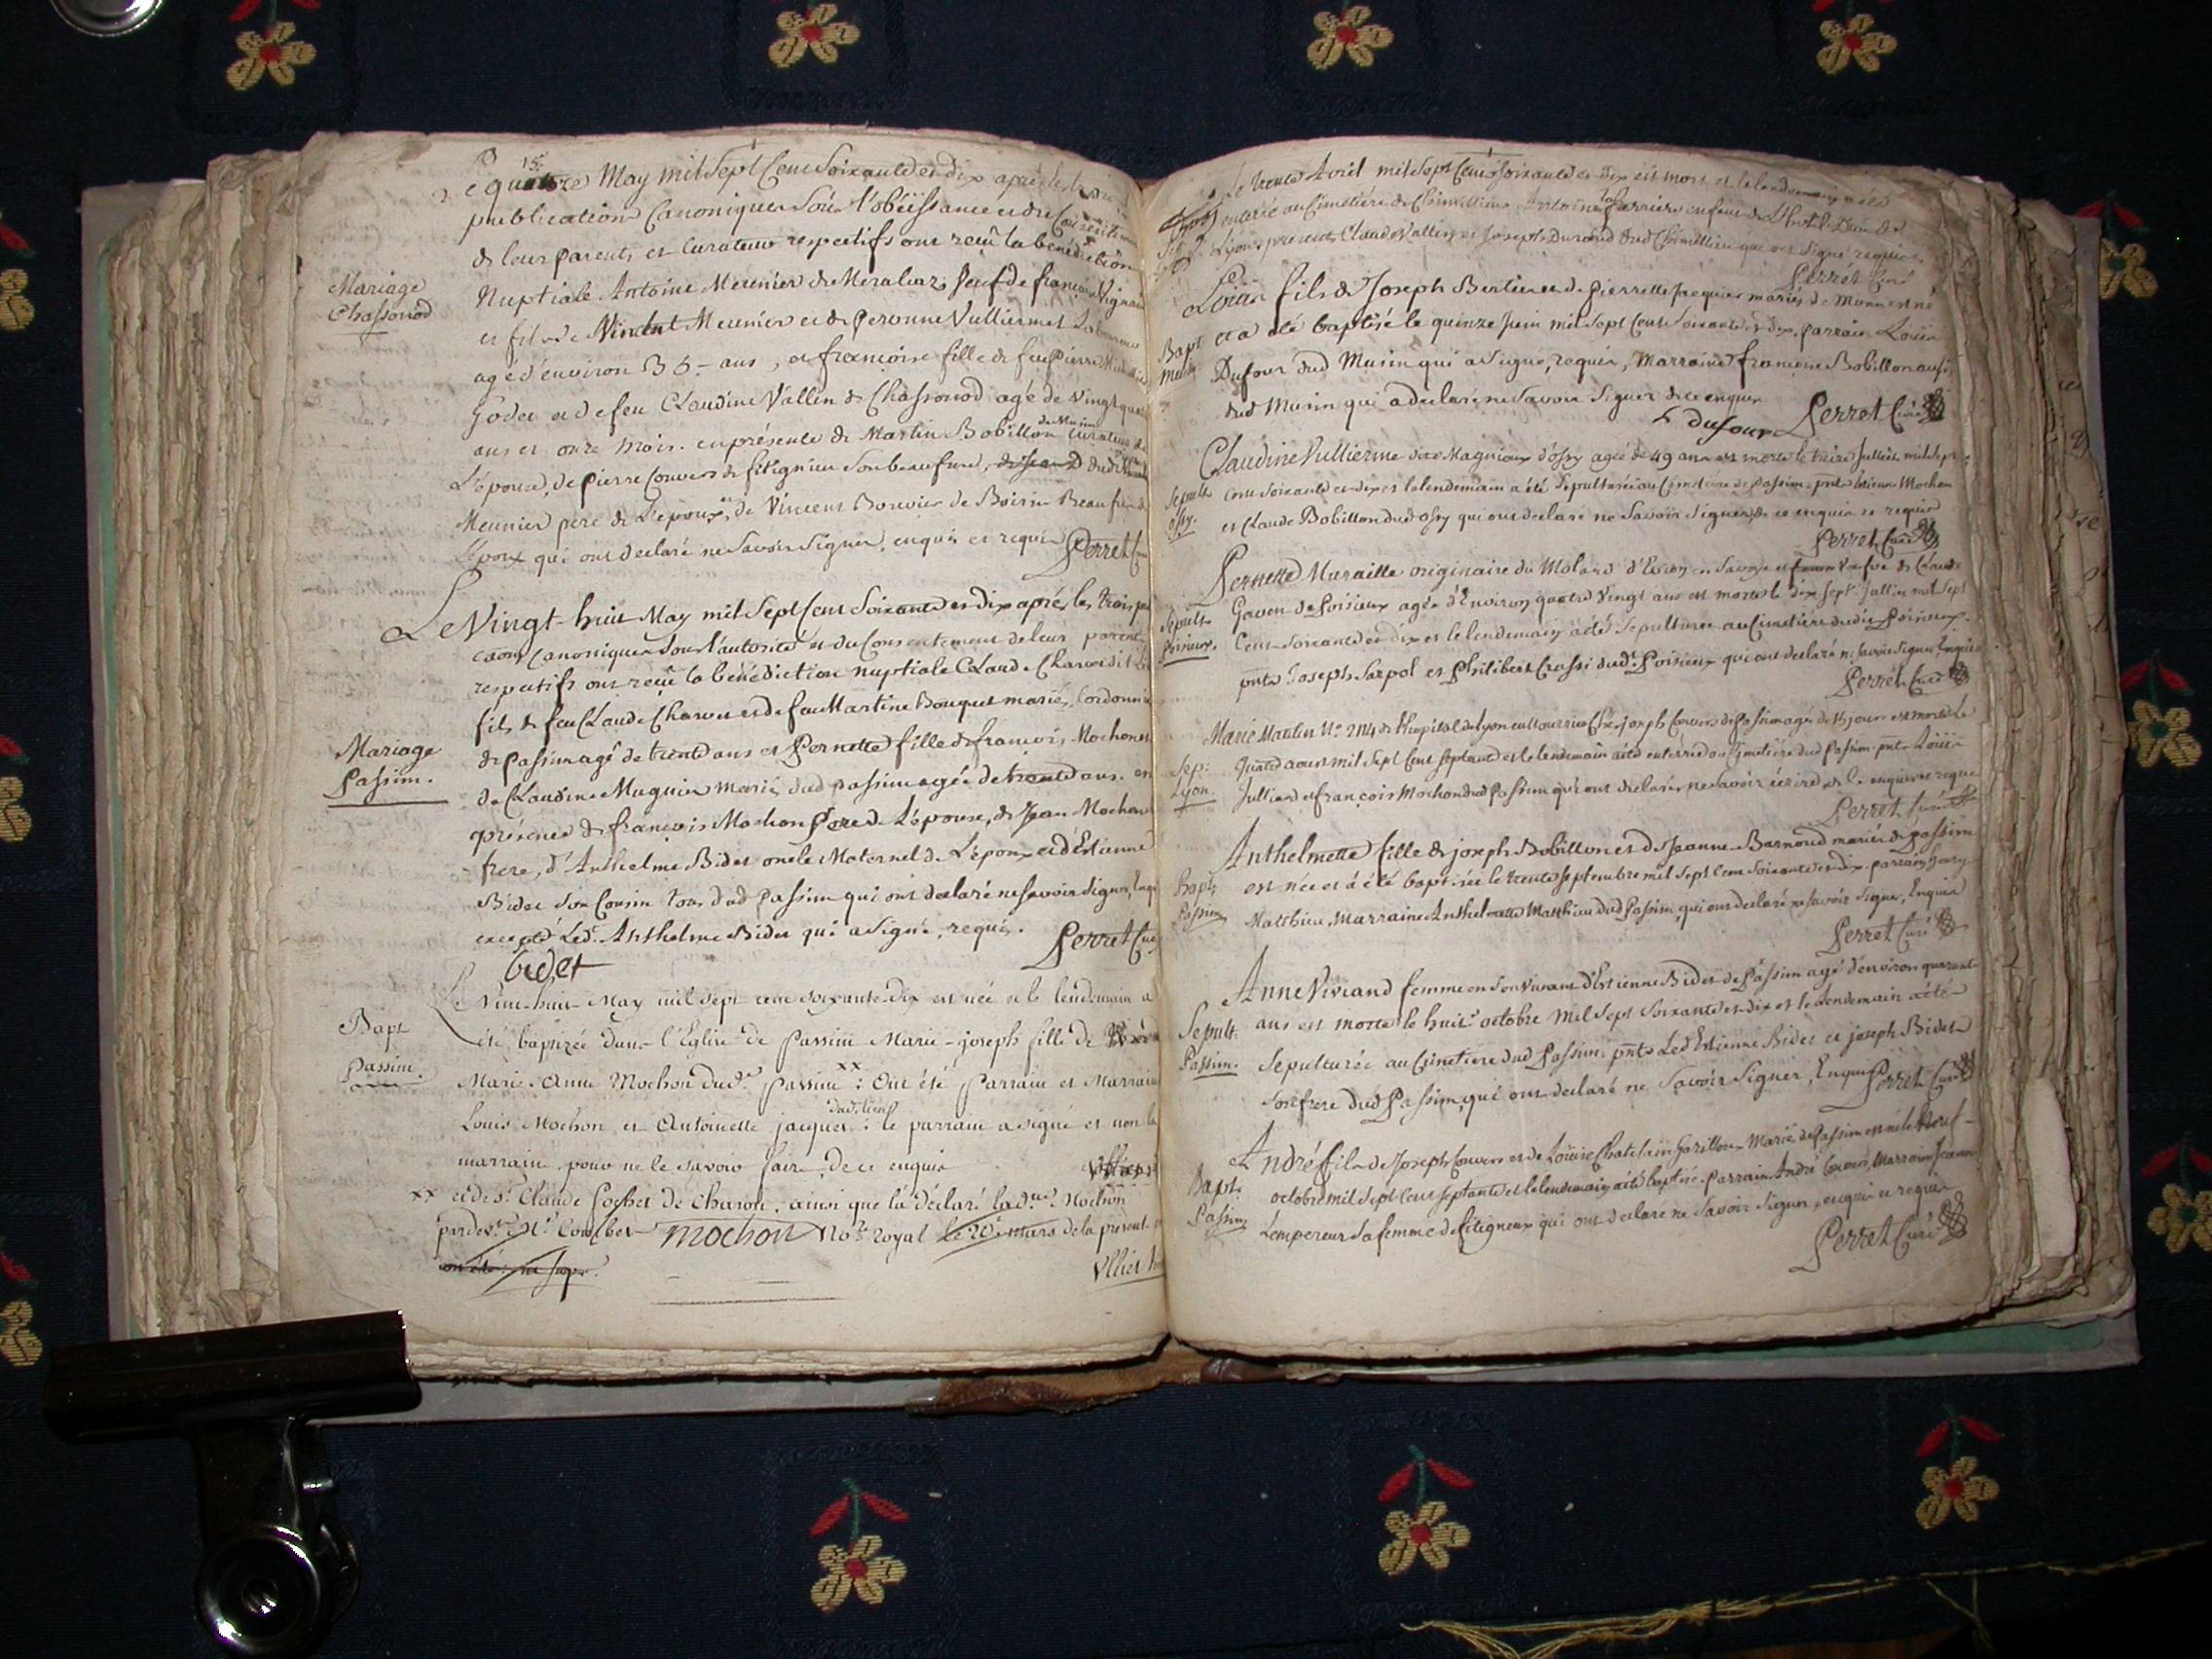 15
Le quatorze May mil Sept Cent Soixante et dix après les trois
publications Canoniques Sous l'obéissance et du Consentement
de leurs parents et Curateurs respectifs ont reçu la bénédiction
Mariage
Chassonod
Nuptiale Antoine Meunier de Meraleaz veuf de françoise Vignand
et fils de Vincent Meunier et de Peronne Vulliermet Laboureur
agé d'environ 35 - ans, et françoise fille de feu Pierre
Godet et de feu Claudine Vallin de Chassonod agé de Vingt quatre
ans et onze mois. en présence de Martin Bobillon de Musin Curateur de
L'épouse, de pierre Convers de fitignieu Son beaufrere,
Meunier père de L'époux, et de Vincent Bouvier de Boirin Beaufrere de
L'époux qui ont declaré ne Savoir Signer, enquis et requis Perret Curé
Le Vingt-huit May mil Sept Cent Soixante et dix après les trois
canoniques Sous l'autorité et du Consentement de leurs parents
respectifs ont reçu la bénédiction nuptiale Claude Charvet dit
fils de feu Claude Charvet et de feu Martine Bouquet mariés, Cordonnier
Mariage
Passim.
de passim agé de trente ans et Pernette fille de francois Mochon et
de Claudine Muguier mariés dud passim agée de trente ans. en
présence de francois Mochon Pere de L'épouse, de Jean Mochon
frere, d'Anthelme Bidet oncle Maternel de L'époux et d'Estienne
Bidet Son Cousin tous dud passim qui ont declaré ne savoir signer, Enquis
excepté Led. Anthelme Bidet qui a Signé, requis. Perret Curé
bidet
Le Vint-huit May mil sept cent soixante-dix est née et le lendemain a
Bapt
Passim.
été baptizée dans l'Eglise de passim Marie-joseph fille de
Marie Anne Mochon dud. passim xx : Ont été parrain et Marraine
Louis Mochon et Antoinette jacquet dud. lieu : le parrain a signé et non la
marraine pour ne le savoir faire, de ce enquis
xx et de Sr. Claude Cochet de Charon, ainsi que l'a déclaré lad. Mochon
pardevt. Me. Combet mochon No.re Royal le 20e mars de la présente
Le trente Avril mil Sept Cent Soixante et dix est mort et le lendemain a été
enterré au Cimetière de Chimillieu Antoine la ferriere enfant de L'hotel Dieu de
Lyon, présents Claude Vallin et Joseph Durand dud Chimillieu qui ont Signé requis.
Perret Curé
Louis fils de Joseph Berlier et de Pierrette Jacquier mariés de Musin est né
Bapt
Musin
et a été baptisé le quinze Juin mil Sept Cent Soixante et dix, parrain Louis
Dufour dud Musin qui a Signé, requis, Marraine françoise Bobillon aussi
dud Musin qui a declaré ne Savoir Signer de ce enquise
L dufour Perret Curé
Claudine Vullierme dite Magnioux d'ossy agée de 49 ans est morte le treize Juillet mil Sept
Sepult
ossy.
cent soixante et dix et le lendemain a été Sepulturée au Cimetière de Passim, pnts Estienne Mochon
et Claude Bobillon dud ossy qui ont declaré ne Savoir Signer, de ce enquis et requis
Perret Curé
Pernette Muraille originaire du Molard d' en Savoye et Veufve de Claude
Sepult.
Poisieux.
Gaven de Poisieux agée d'Environ quatre Vingt ans est morte le dix Sept Juillet mil Sept
Cent Soixante et dix et le lendemain a été Sepulturée au Cimetière dudit Poisieux.
pnts Joseph Sarpol et Philibert Crassi dudt. Poisieux qui ont declaré ne Savoir Signer Enquis
Perret Curé
Marie Martin No. 2114 de L'hopital de lyon en Nourrice Chez joseph Convers de Passim agée de 15 jours est morte Le
Sep:
Lyon.
quatre aoust mil Sept Cent Septante et le lendemain a été enterrée au Cimetière dud Passim. pnts Louis
Julliard et françois Mochon dud Passim qui ont declaré ne Savoir écrire de ce enquis et requis
Perret Curé
Anthelmette fille de joseph Bobillon et de Jeanne Barnoud mariés de passim
Bapt.
Passim
est née et a été baptisée le trente Septembre mil Sept Cent Soixante et dix. parrain
Matthieu, Marraine Anthelmette Matthieu dud Passim, qui ont declaré ne Savoir Signer, Enquis
Perret Curé
Anne Viviand femme en Son Vivant d'Estienne Bidet de Passim agé d'environ quarante
Sepult.
Passim.
ans est morte le huit octobre Mil Sept Soixante et dix et le Lendemain a été
Sepulturée au Cimetiere dud Passim, pnts Led Estienne Bidet et joseph Bidet
Son frere dud Passim, qui ont declaré ne Savoir Signer, Enquis Perret Curé
André fils de Joseph Convers et de Louise Chatelain Mariés de Passim est né le Neuf
Bapt.
Passim
octobre mil Sept Cent Septante et le lendemain a été baptisé. Parrain André Convers, Marraine Jeanne
Lempereur Sa femme de fitignieux qui ont declaré ne Savoir Signer, enquis et requis
Perret Curé